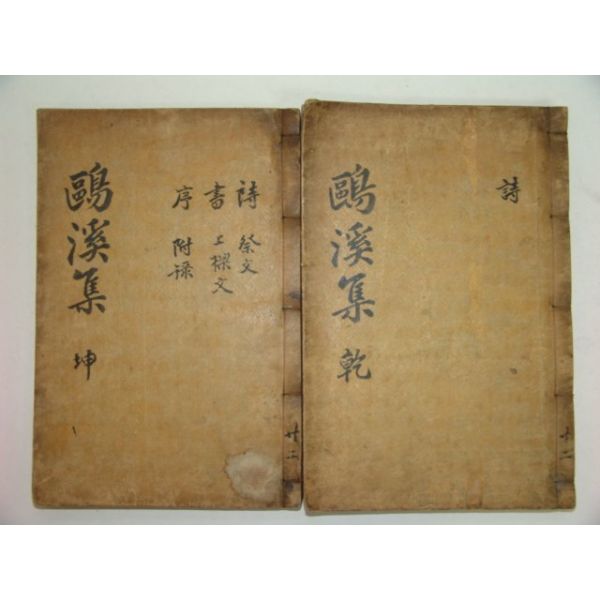 詩
鷗溪集 乾
詩 祭文
書 上樑文
序 附錄
鷗溪集 坤